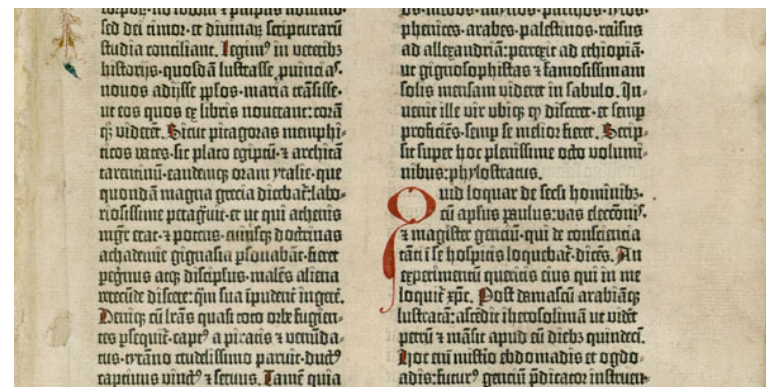 sed dei timor et diuinaꝝ scripturarū
studia conciliant. Legimꝰ in veteribꝫ
historijs· quosdā lustrasse ꝓuinciaˢ·
nouos adijsse pplos· maria trāsisse·
ut eos quos ex libris nouerant: corā
qꝫ viderēt. Sicut pitagoras memphi-
ticos vates· sic plato egiptū· ⁊ architā
tarentinū· eandemqꝫ oram ytalie· que
quondā magna grecia dicebat̃: labo-
riosissime peragͥuit· et ut qui athenis
mgr̄ erat· ⁊ potens· cuiusqꝫ doctrinas
achademie gignasia ꝑsonabāt· fieret
peg̃nus atqꝫ discipľus· malēs aliena
verecūde discere: q̄m sua īpudent̄ ingere.
Deniqꝫ cū lr̄as quasi toto orbe fugien-
tes ꝑsequit̃· captꝰ a piratis ⁊ venūda-
tus· tyrāno crudelissimo paruit· ductꝰ
captiuus vinctꝰ ⁊ seruus. Tamē quia
phenices· arabes· palestinos· reūsus
ad allexandriā: perrexit ad ethiopiā·
ut gignosophistas ⁊ famosissimam
solis mensam videret in sabulo. In-
uenit ille vir vbiqꝫ qd̄ disceret· et semp
proficiēs· semp se melior fieret. Scrip-
sit super hoc plenissime octo volumi-
nibus: phylostratus.
Quid loquar de secľi hominibꝫ·
cū apľus paulus: vas electōnis·
⁊ magister gentiū· qui de conscientia
tāti ī se hospitis loquebat̃· dicēs. An
experimentū queritis eius qui in me
loquit̃ xp̄c. Post damascū arabiāqꝫ
lustratā: ascēdit iherosolimā ut videt̄
petrū ⁊ māsit apud eū diebꝫ quindeci.
Hoc enī misterio ebdomadis et ogdo-
adis: futurꝰ gentiū p̄dicator instruen-